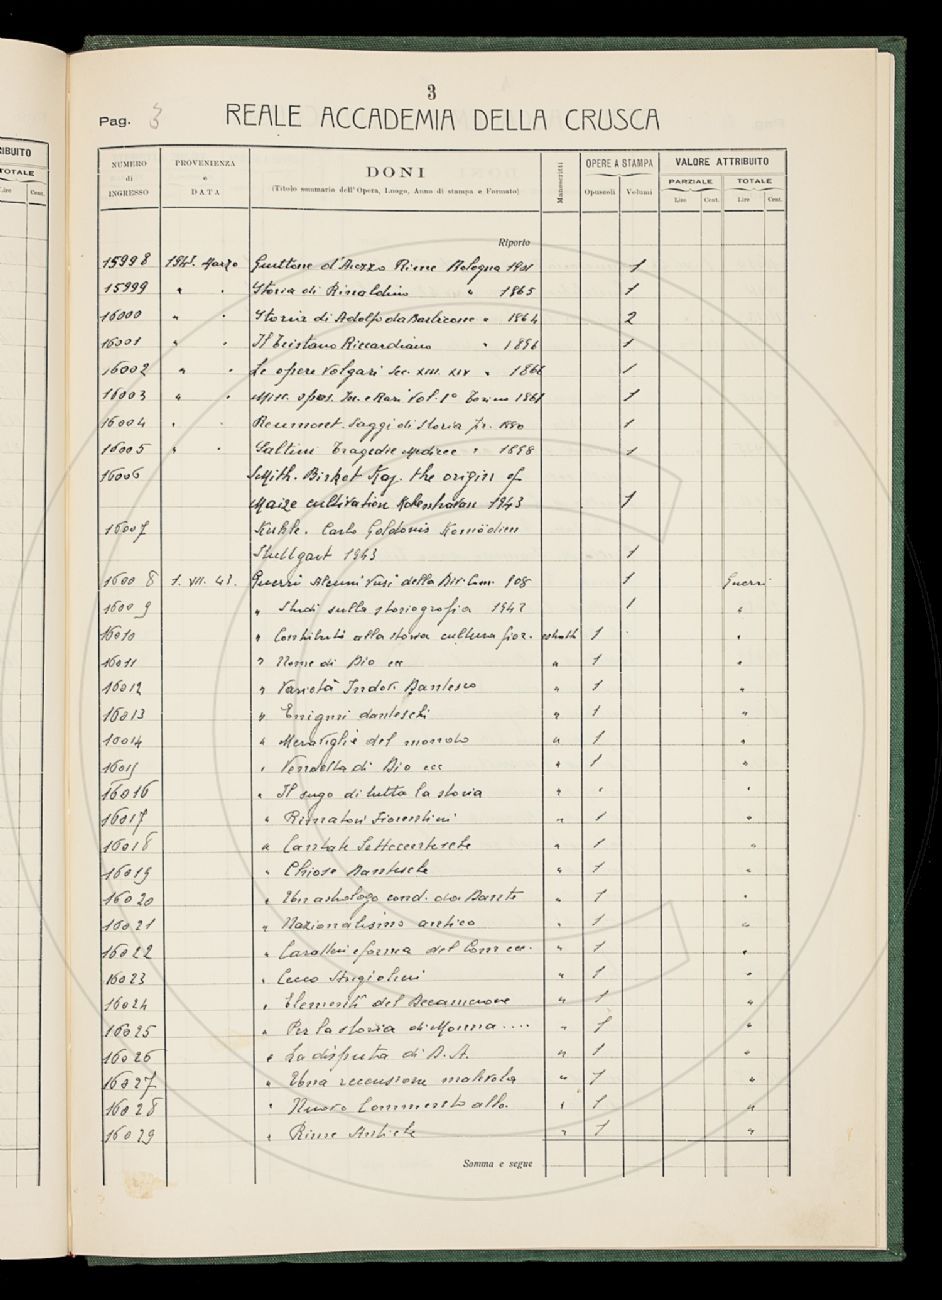 RIBUITO
TOTALE
Lire Cent.
3
Pag. 3 REALE ACCADEMIA DELLA CRUSCA
NUMERO di INGRESSO
PROVENIENZA e DATA
DONI
(Titolo sommario dell'Opera, Luogo, Anno di stampa e Formato)
Manoscritti
OPERE A STAMPA
Opuscoli Volumi
VALORE ATTRIBUITO
PARZIALE TOTALE
Lire Cent. Lire Cent.
Riporto
15998 Marzo Guittone d'Arezzo Rime Bologna 1901 1
15999 " " Storia di Rinaldino " 1865 1
16000 " " Storia di Adolfo da Barbicone " 1864 2
16001 " " Il Tristano Riccardiano " 1896 1
16002 " " Le opere volgari sec. XIII. XIV " 1
16003 " " Misc. opus. In. e Rari Vol. 1° Torino 1861 1
16004 " " Reumont. Saggi di storia 1880 1
16005 " " Saltini Tragedie Medicee " 1898 1
16006 Smith. Birket Kaj. the origin of
Maize cultivation 1943 1
16007 Kuhle. Carlo Goldonis Komödien
Stuttgart 1943 1
16008 1. VII. 43. Guerri Alcuni versi della Div. Com. 908 1 Guerri
16009 " Studi sulla storiografia 1942 1 "
16010 " Contributi alla storia cultura fior. estratto 1 "
16011 " Nome di Dio ecc " 1 "
16012 " Varietà Indov. Dantesco " 1 "
16013 " Enigmi danteschi " 1 "
16014 " Meraviglie del mondo " 1 "
16015 " Vendetta di Dio ecc " 1 "
16016 " Il sugo di tutta la storia " " "
16017 " Rimatori Fiorentini " 1 "
16018 " Cantate Settecentesche " 1 "
16019 " Chiose Dantesche " 1 "
16020 " Un astrologo cond. da Dante " 1 "
16021 " Nazionalismo antico " 1 "
16022 " Caratteri e forma del Com ecc. " 1 "
16023 " Cecco Angiolieri " 1 "
16024 " Elementi del Decamerone " 1 "
16025 " Per la storia di Monna .... " 1 "
16026 " La disputa di D. A. " 1 "
16027 " Una recensione malevola " 1 "
16028 " Nuovo Commento alla " 1 "
16029 " Rime Antiche " 1 "
Somma e segue